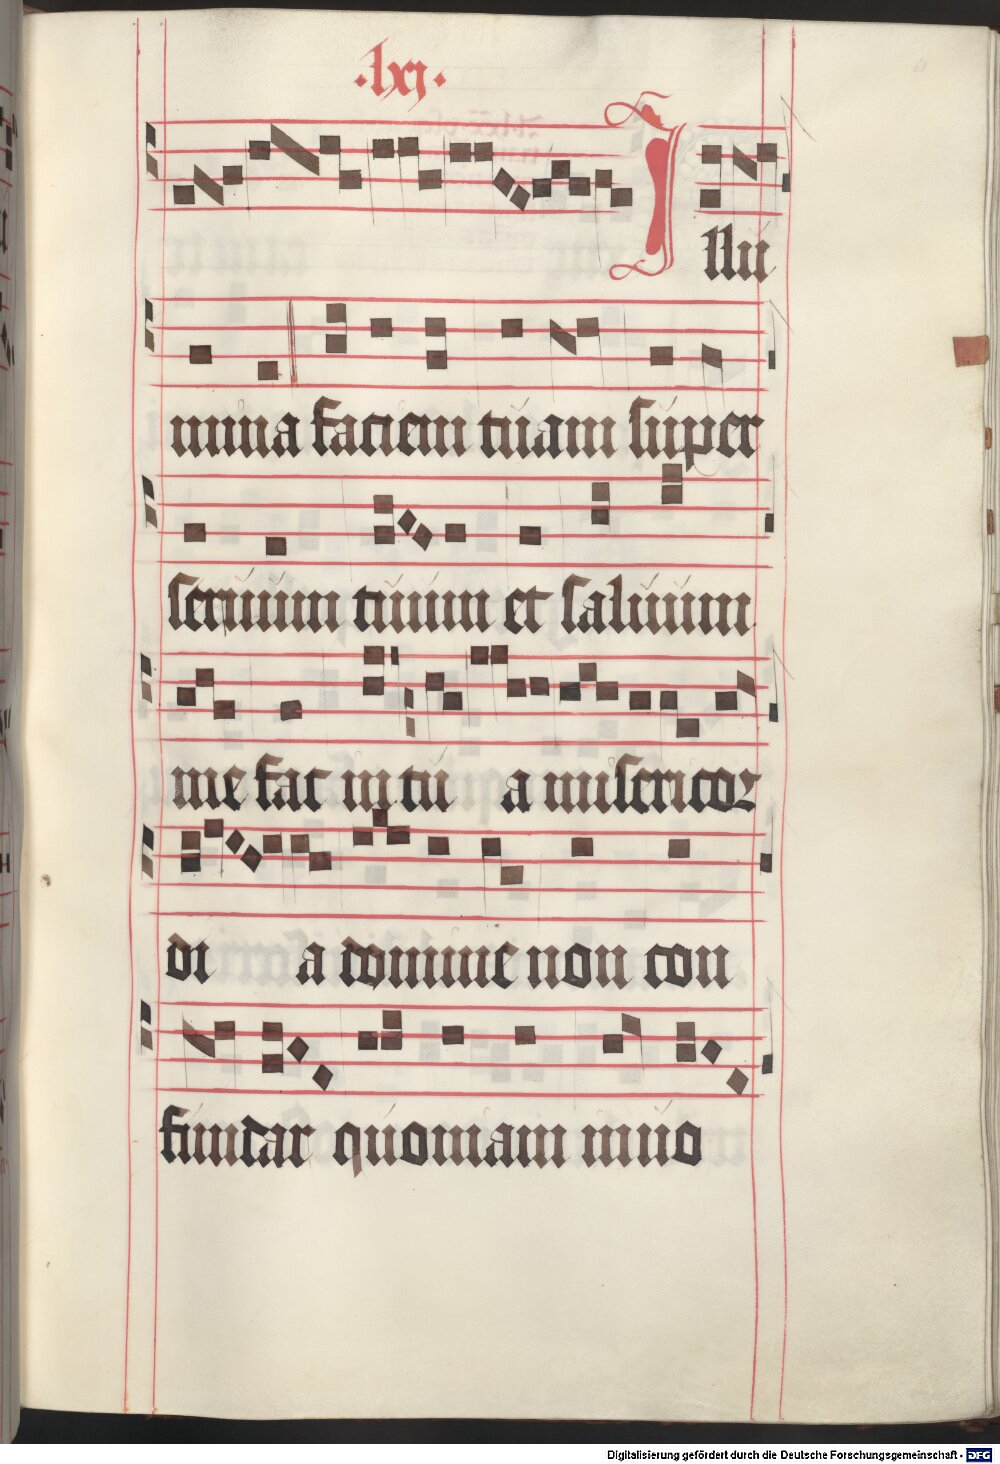 ·lxj·
Illu
mina faciem tuam super
seruum tuum et saluum
me fac in tu a misericor
di a domine non con
fundar quoniam inuo
Digitalisierung gefördert durch die Deutsche Forschungsgemeinschaft - DFG